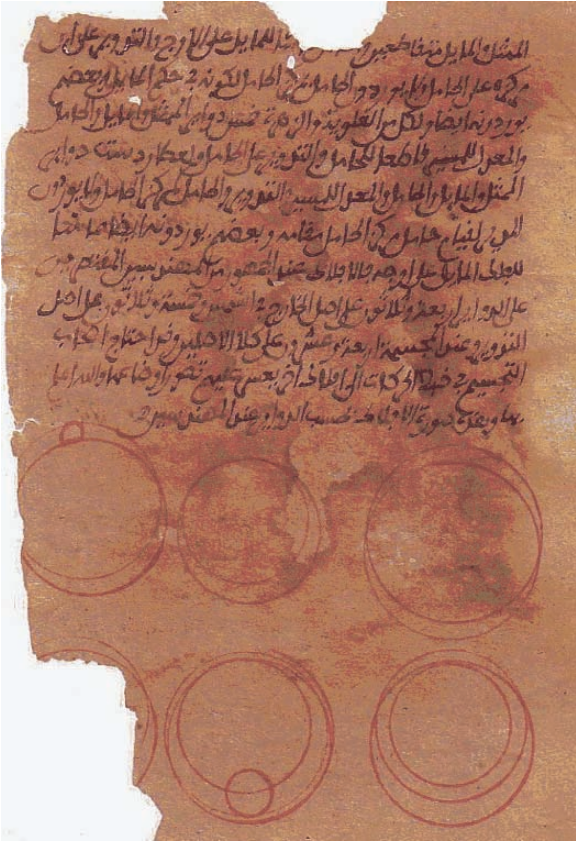 الممثل والمايل متقاطعين للمايل على الاوج والتدوير على
مركزه على الحامل ولا يوردون الحامل مركز الحامل لكونه في حكم المايل وبعضهم
يوردونه ايضا ولكل من العلوية والزهرة خمس دواير الممثل والمايل والحامل
والمعدل للمسير قاطعا للحامل والتدوير على الحامل ولعطارد ست دواير
الممثل والمايل والحامل والمعدل للمسير والتدوير والحامل لمركز الحامل ولا يوردون
المدير لقيام حامل مركز الحامل مقامه وبعضهم يوردونه ايضا مماسا
للمايل على اوجه فالافلاك عند الجمهور من المقتصرين
على الدواير اربعة وثلاثون على اصل الخارج في الشمس وخمسة وثلاثون على اصل
التدوير وعند المجسمة اربعة وعشرون على كلا الاصلين وقد احتاج اصحاب
التجسيم في ضبط الحركات الى افلاك اخر يعسر عليهم تصور اوضاعها والله اعلم
بها وهذه صورة الافلاك حسب الدواير عند المقتصرين